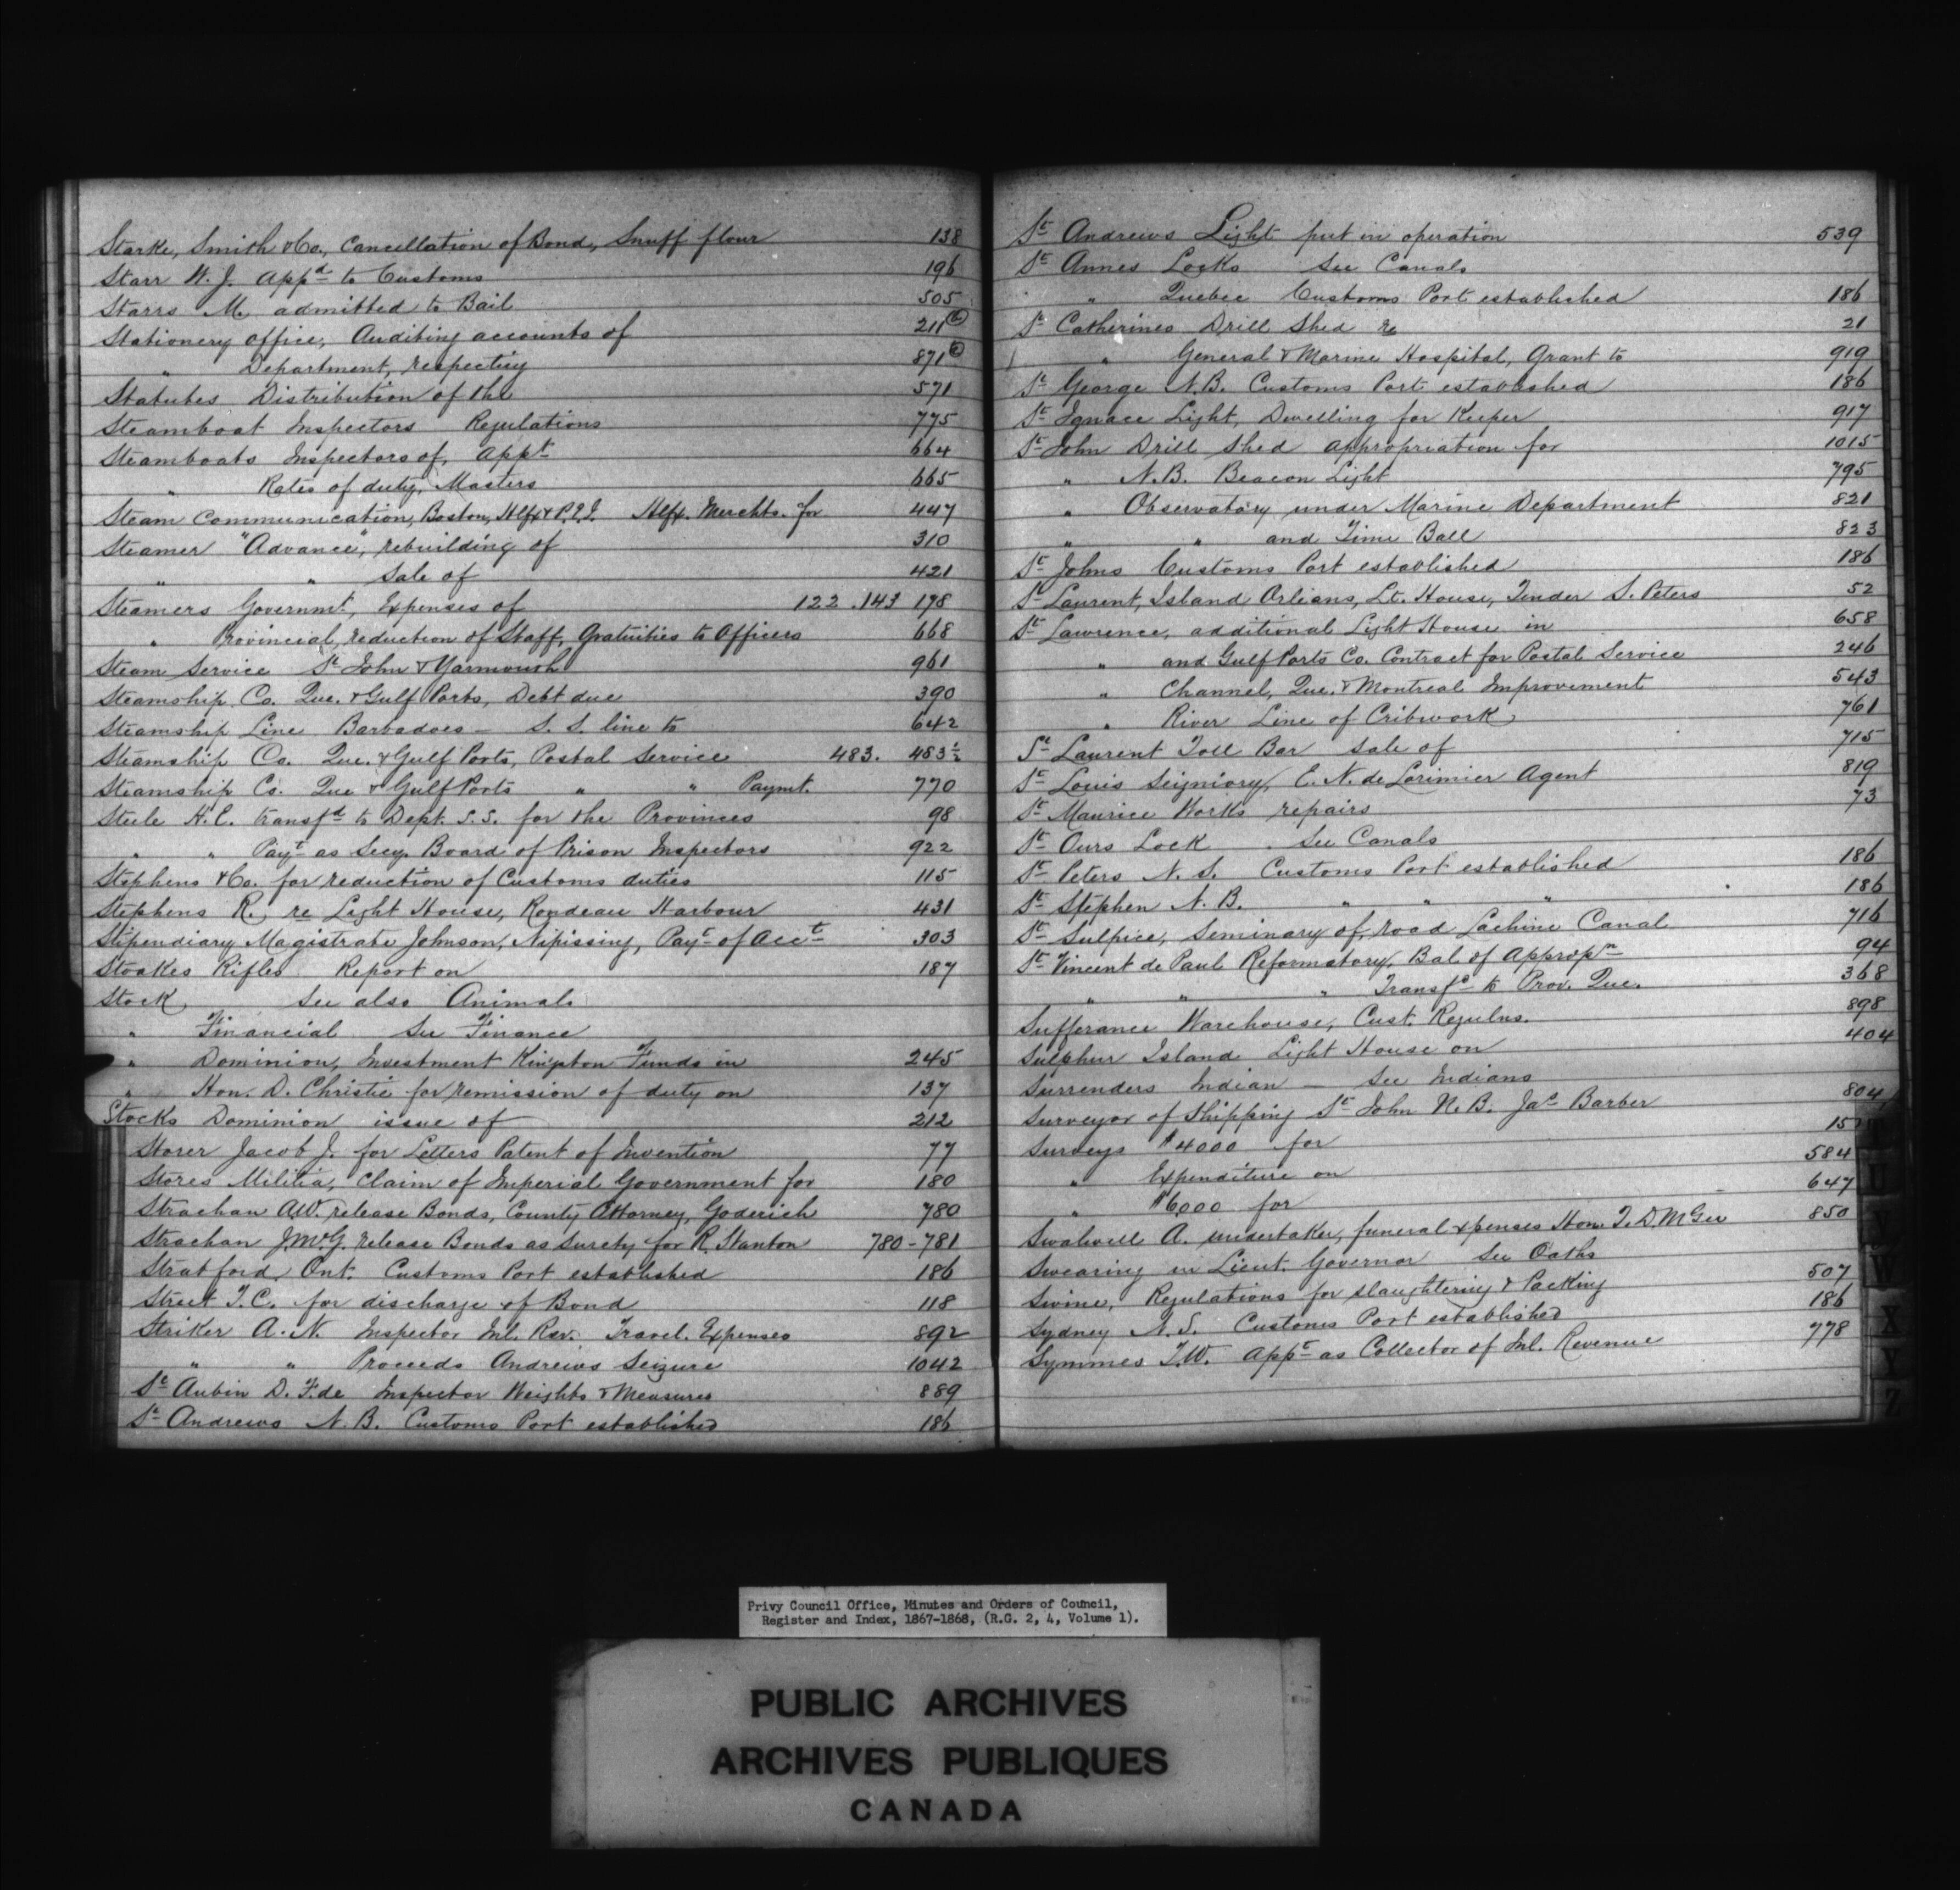 Starke, Smith & Co., Cancellation of Bond, Snuff flour 138
Starr W. J. appd to Customs 196
Starrs M. admitted to Bail 505
Stationery office, Auditing accounts of 211
" Department, respecting 871
Statutes Distribution of the 571
Steamboat Inspectors Regulations 775
Steamboats Inspectors of, Appt 664
" Rates of duty, Masters 665
Steam Communication, Boston, Hlfx & P.E.I. Hlfx. Merchts. for 447
Steamer "Advance", rebuilding of 310
" " Sale of 421
Steamers Governmt, Expenses of 122 . 143 198
" Provincial, reduction of Staff, Gratuities to Officers 668
Steam Service St John & Yarmouth 961
Steamship Co. Que. & Gulf Ports, Debt due 390
Steamship Line Barbadoes - S. S. line to 642
Steamship Co. Que. & Gulf Ports, Postal Service 483. 483½
Steamship Co. Que & Gulf Ports " " Paymt. 770
Steele H. E. transfd to Dept. S.S. for the Provinces 98
" " Payt as Secy. Board of Prison Inspectors 922
Stephens & Co. for reduction of Customs duties 115
Stephens R. re Light House, Rondeau Harbour 431
Stipendiary Magistrate Johnson, Nipissing, Payt of Acct 303
Stoakes Rifles Report on 187
Stock, See also Animals
" Financial See Finance
" Dominion, Investment Kingston Funds in 245
" Hon. D. Christie for remission of duty on 137
Stocks Dominion issue of 212
Storer Jacob J. for Letters Patent of Invention 77
Stores Militia, Claim of Imperial Government for 180
Strachan A.W. release Bonds, County Attorney, Goderich 780
Strachan J. McG. release Bonds as Surety for R. Stanton 780-781
Stratford, Ont. Customs Port established 186
Street T. C. for discharge of Bond 118
Striker A. N. Inspector Inl. Rev. Travel. Expenses 892
" " Proceeds Andrews Seizure 1042
St Aubin D. F. de Inspector Weights & Measures 889
St Andrews N. B. Customs Port established 186
St Andrews Light put in operation 539
St Annes Locks See Canals
" Quebec Customs Port established 186
St Catherines Drill Shed re 21
" General & Marine Hospital, Grant to 919
St George N. B. Customs Port established 186
St Ignace Light, Dwelling for Keeper 917
St John Drill Shed appropriation for 1015
" N. B. Beacon Light 795
" Observatory under Marine Department 821
" " and Time Ball 823
St Johns Customs Port established 186
St Laurent, Island Orleans, Lt. House, Tender S. Peters 52
St Lawrence, additional Light House in 658
" and Gulf Ports Co. Contract for Postal Service 246
" Channel, Que. & Montreal Improvement 543
" River Line of Cribwork 761
St Laurent Toll Bar Sale of 715
St Louis Seigniory, E. N. de Lorimier Agent 819
St Maurice Works repairs 73
St Ours Lock . See Canals
St Peters N. S. Customs Port established 186
St Stephen N. B. " " " 186
St Sulpice, Seminary of, road Lachine Canal 716
St Vincent de Paul Reformatory, Bal of Appropn 94
" " " Transfd to Prov. Que. 368
Sufferance Warehouse, Cust. Regulns. 898
Sulphur Island Light House on 404
Surrenders Indian — See Indians
Surveyor of Shipping St John N. B. Jas Barber 804
Surveys $4000 for
" Expenditure on 584
" $6,000 for 647
Swalwell A. undertaker, funeral expenses Hon. T. D. McGee 850
Swearing in Lieut. Governor See Oaths
Swine, Regulations for slaughtering & Packing 507
Sydney N. S. Customs Port established 186
Symmes T.W. appt as Collector of Inl. Revenue 778
W
X
Y
Z
Privy Council Office, Minutes and Orders of Council,
Register and Index, 1867-1868, (R.G. 2, 4, Volume 1).
PUBLIC ARCHIVES
ARCHIVES PUBLIQUES
CANADA